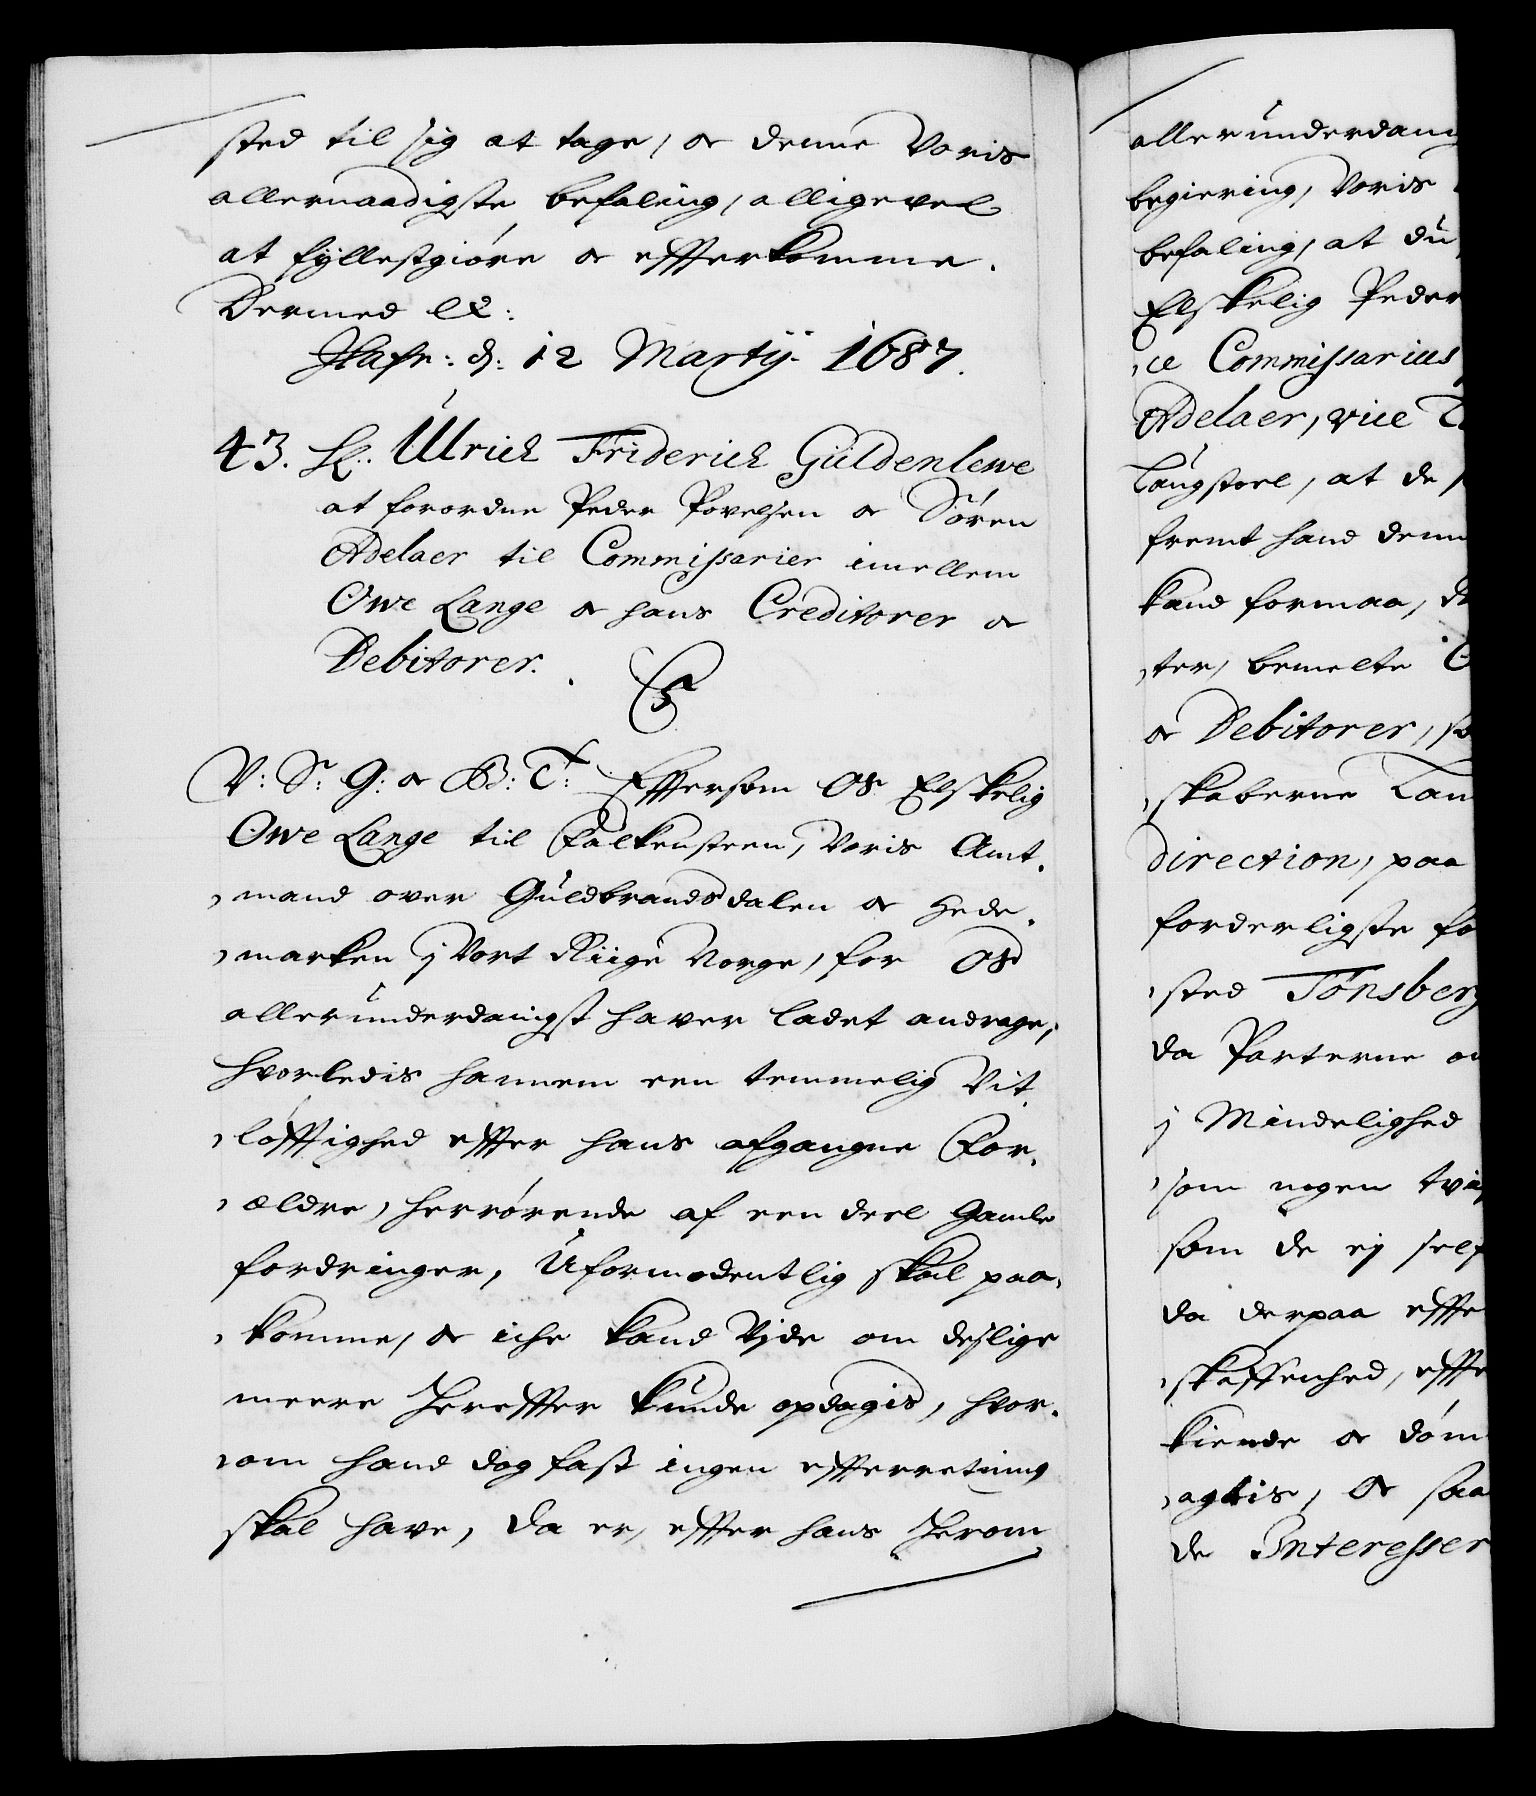 sted til sig at tage, oc denne Voris
allernaadigste befaling, alligevel
at fyllestgiøre oc effterkomme.
Dermed etc:
Hafn: d: 12 Martij 1687.
43. H: Ulrich Friderich Güldenlewe
at forordne Peder Povelsen oc Søren
Adelaer til Commissarier imellem
Owe Lange oc hans Creditorer oc
Debitorer.
C5
V: Sr: G: oc B: T: Effersom Os Elskelig
Owe Lange til Falkensteen, Voris Amt,
,mand over Guldbrandsdalen oc Hede,
,marken j Vort Riige Norge, for Os
allerunderdanigst haver ladet andrage,
hvorledis hannem een temmelig Vit,
,løfftighed effter hans afgangne For,
,ældre, herrørende af een deel Gamle
fordringer, Uformodentlig skal paa,
,komme, oc iche kand Vide om deslige
meere Hereffter kunde opdagis, hvor,
,om hand dog fast ingen effterretning
skal have, Da er, effter hans Herom
allerunderdanig
begiering, Voris
befaling, at du
Elskelig Peder
,ce Commissarius
Adelaer, vice
Laugstoel, at de
fremt hand denn
kand formaa, de
,ter, bemelte
oc Debitorer, so
,skaberne Lan
direction, paa
forderligste fo
,sted Tønsberg
da Parterne
j Mindelighed
,som nogen tvi
som de ej self
da derpaa effte
,skaffenhed, effte
kiende oc døm
,agtis, Oc saa
de Interesser